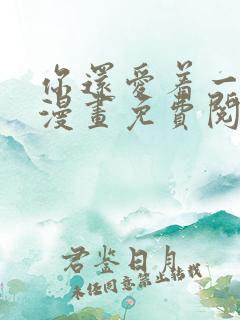 你還愛着一
漫畫免費閱
君鉴日月
未经同意禁止转载